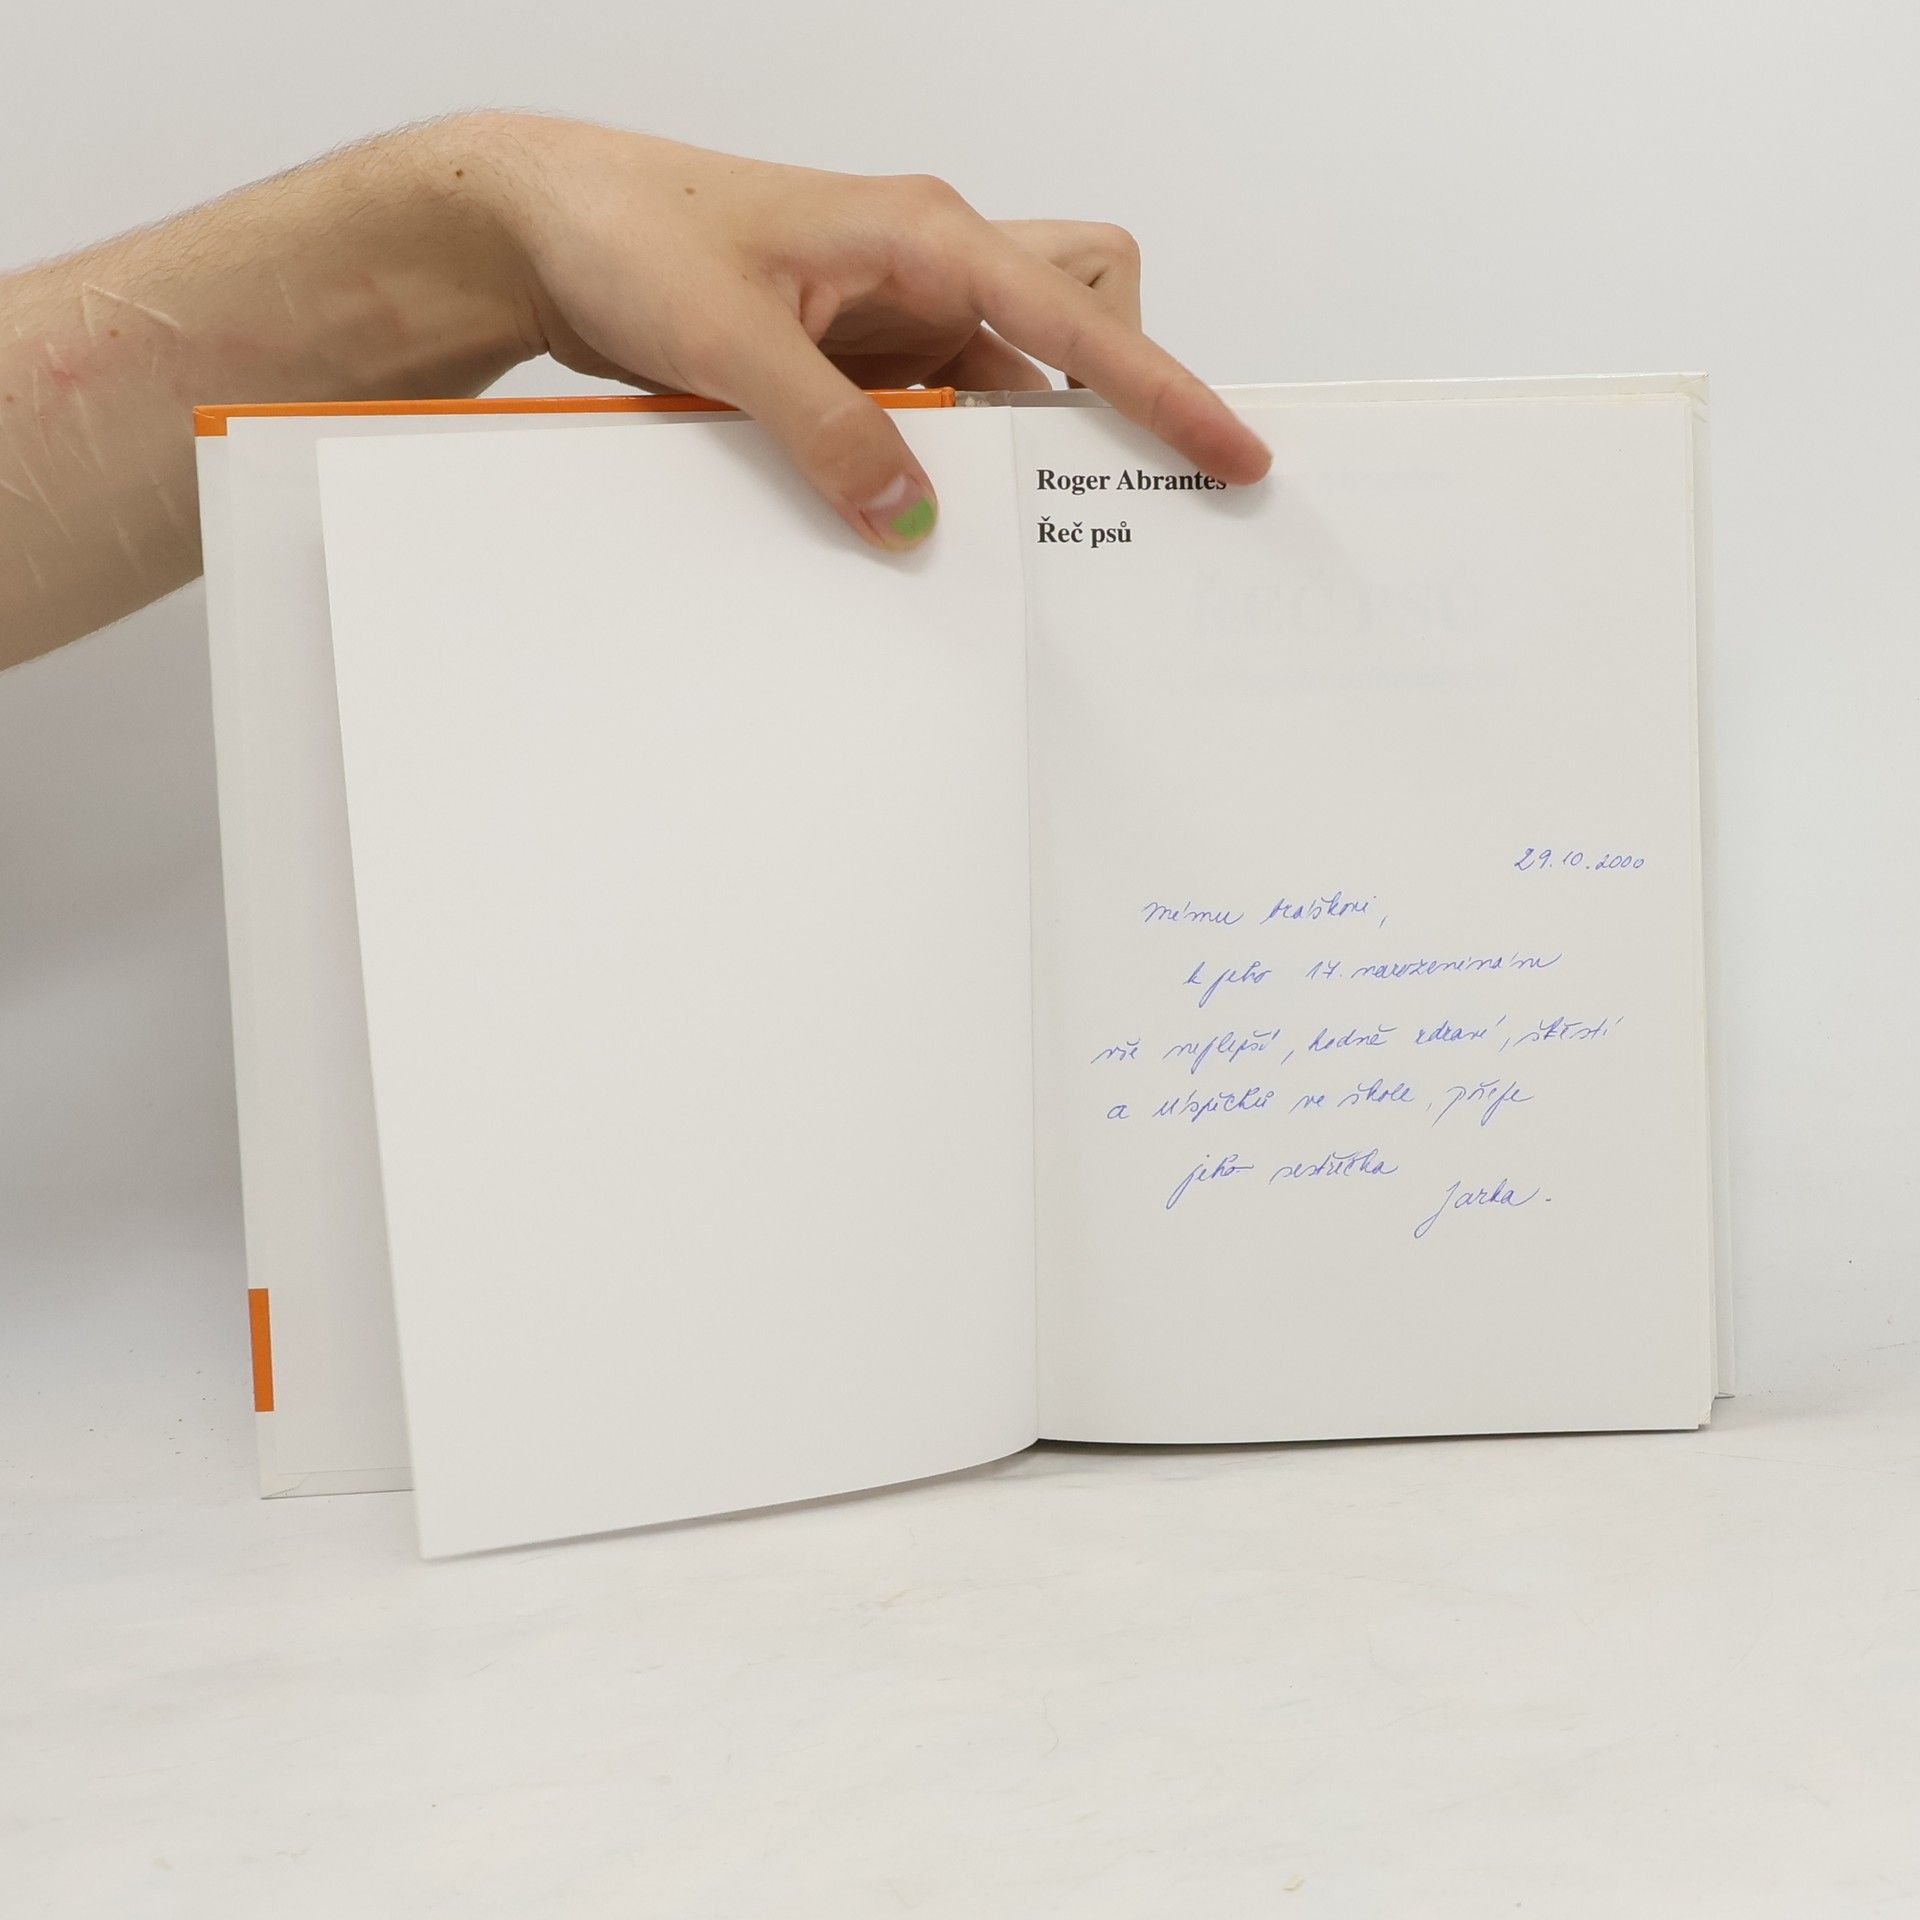 Roger Abrantes
Řeč psů
29.10.2000
Mému bráškovi,
k jeho 17. narozeninám
vše nejlepší, hodně zdraví, štěstí
a úspěchů ve škole, přeje
jeho sestřička
Jarka.